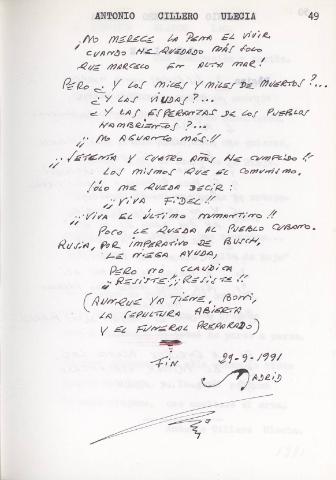 ANTONIO CILLERO ULECIA 49
¡NO MERECE LA PENA EL VIVIR
CUANDO HE QUEDADO MÁS SOLO
QUE MARCELO EN ALTA MAR!
PERO ¿Y LOS MILES Y MILES DE MUERTOS?...
¿Y LAS VIUDAS?...
¿Y LAS ESPERANZAS DE LOS PUEBLOS
HAMBRIENTOS?...
¡¡NO AGUANTO MÁS!!
¡¡SETENTA Y CUATRO AÑOS HE CUMPLIDO!!
LOS MISMOS QUE EL COMUNISMO.
SÓLO ME QUEDA DECIR:
¡¡VIVA FIDEL!!
¡¡VIVA EL ÚLTIMO NUMANTINO!!
POCO LE QUEDA AL PUEBLO CUBANO.
RUSIA, POR IMPERATIVO DE BUSCH,
LE NIEGA AYUDA,
PERO NO CLAUDICA
¡¡RESISTE!!¡¡RESISTE!!
(AUNQUE YA TIENE,
LA SEPULTURA ABIERTA
Y EL FUNERAL PREPARADO)
FIN 29-9-1991
MADRID